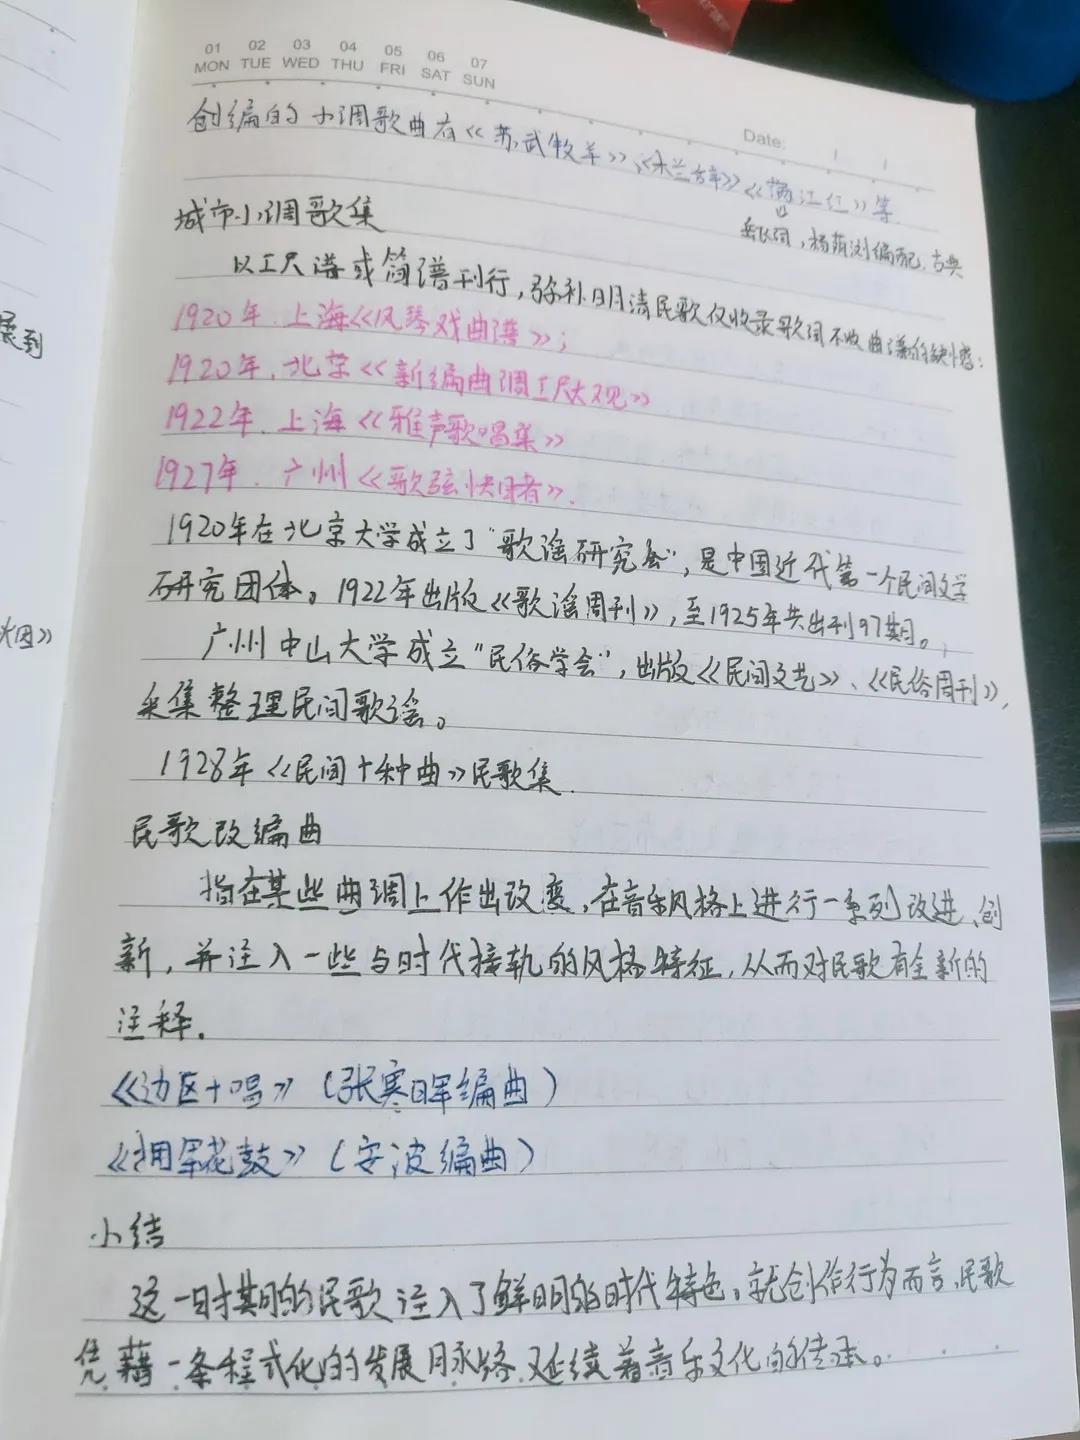 01 02 03 04 05 06 07
MON TUE WED THU FRI SAT SUN
Date:
创编的小调歌曲有《苏武牧羊》、《木兰辞》《满江红》等
岳飞词，杨荫浏编配，古典
城市小调歌集
以工尺谱或简谱刊行，弥补明清民歌仅收录歌词不收曲谱的缺憾：
1920年.上海《风琴戏曲谱》；
1920年.北京《新编曲调工尺大观》
1922年.上海《雅声歌唱集》
1927年.广州《歌弦快睹》.
1920年在北京大学成立了"歌谣研究会"，是中国近代第一个民间文学
研究团体。1922年出版《歌谣周刊》，至1925年共出刊97期。
广州中山大学成立"民俗学会"，出版《民间文艺》、《民俗周刊》，
采集整理民间歌谣。
1928年《民间十种曲》民歌集.
民歌改编曲
指在某些曲调上作出改变，在音乐风格上进行一系列改进、创
新，并注入一些与时代接轨的风格特征，从而对民歌有全新的
注释.
《边区十唱》（张寒晖编曲）
《拥军花鼓》（安波编曲）
小结
这一时期的民歌注入了鲜明的时代特色。就创作行为而言，民歌
凭藉一条程式化的发展脉络延续着音乐文化的传承。
展到